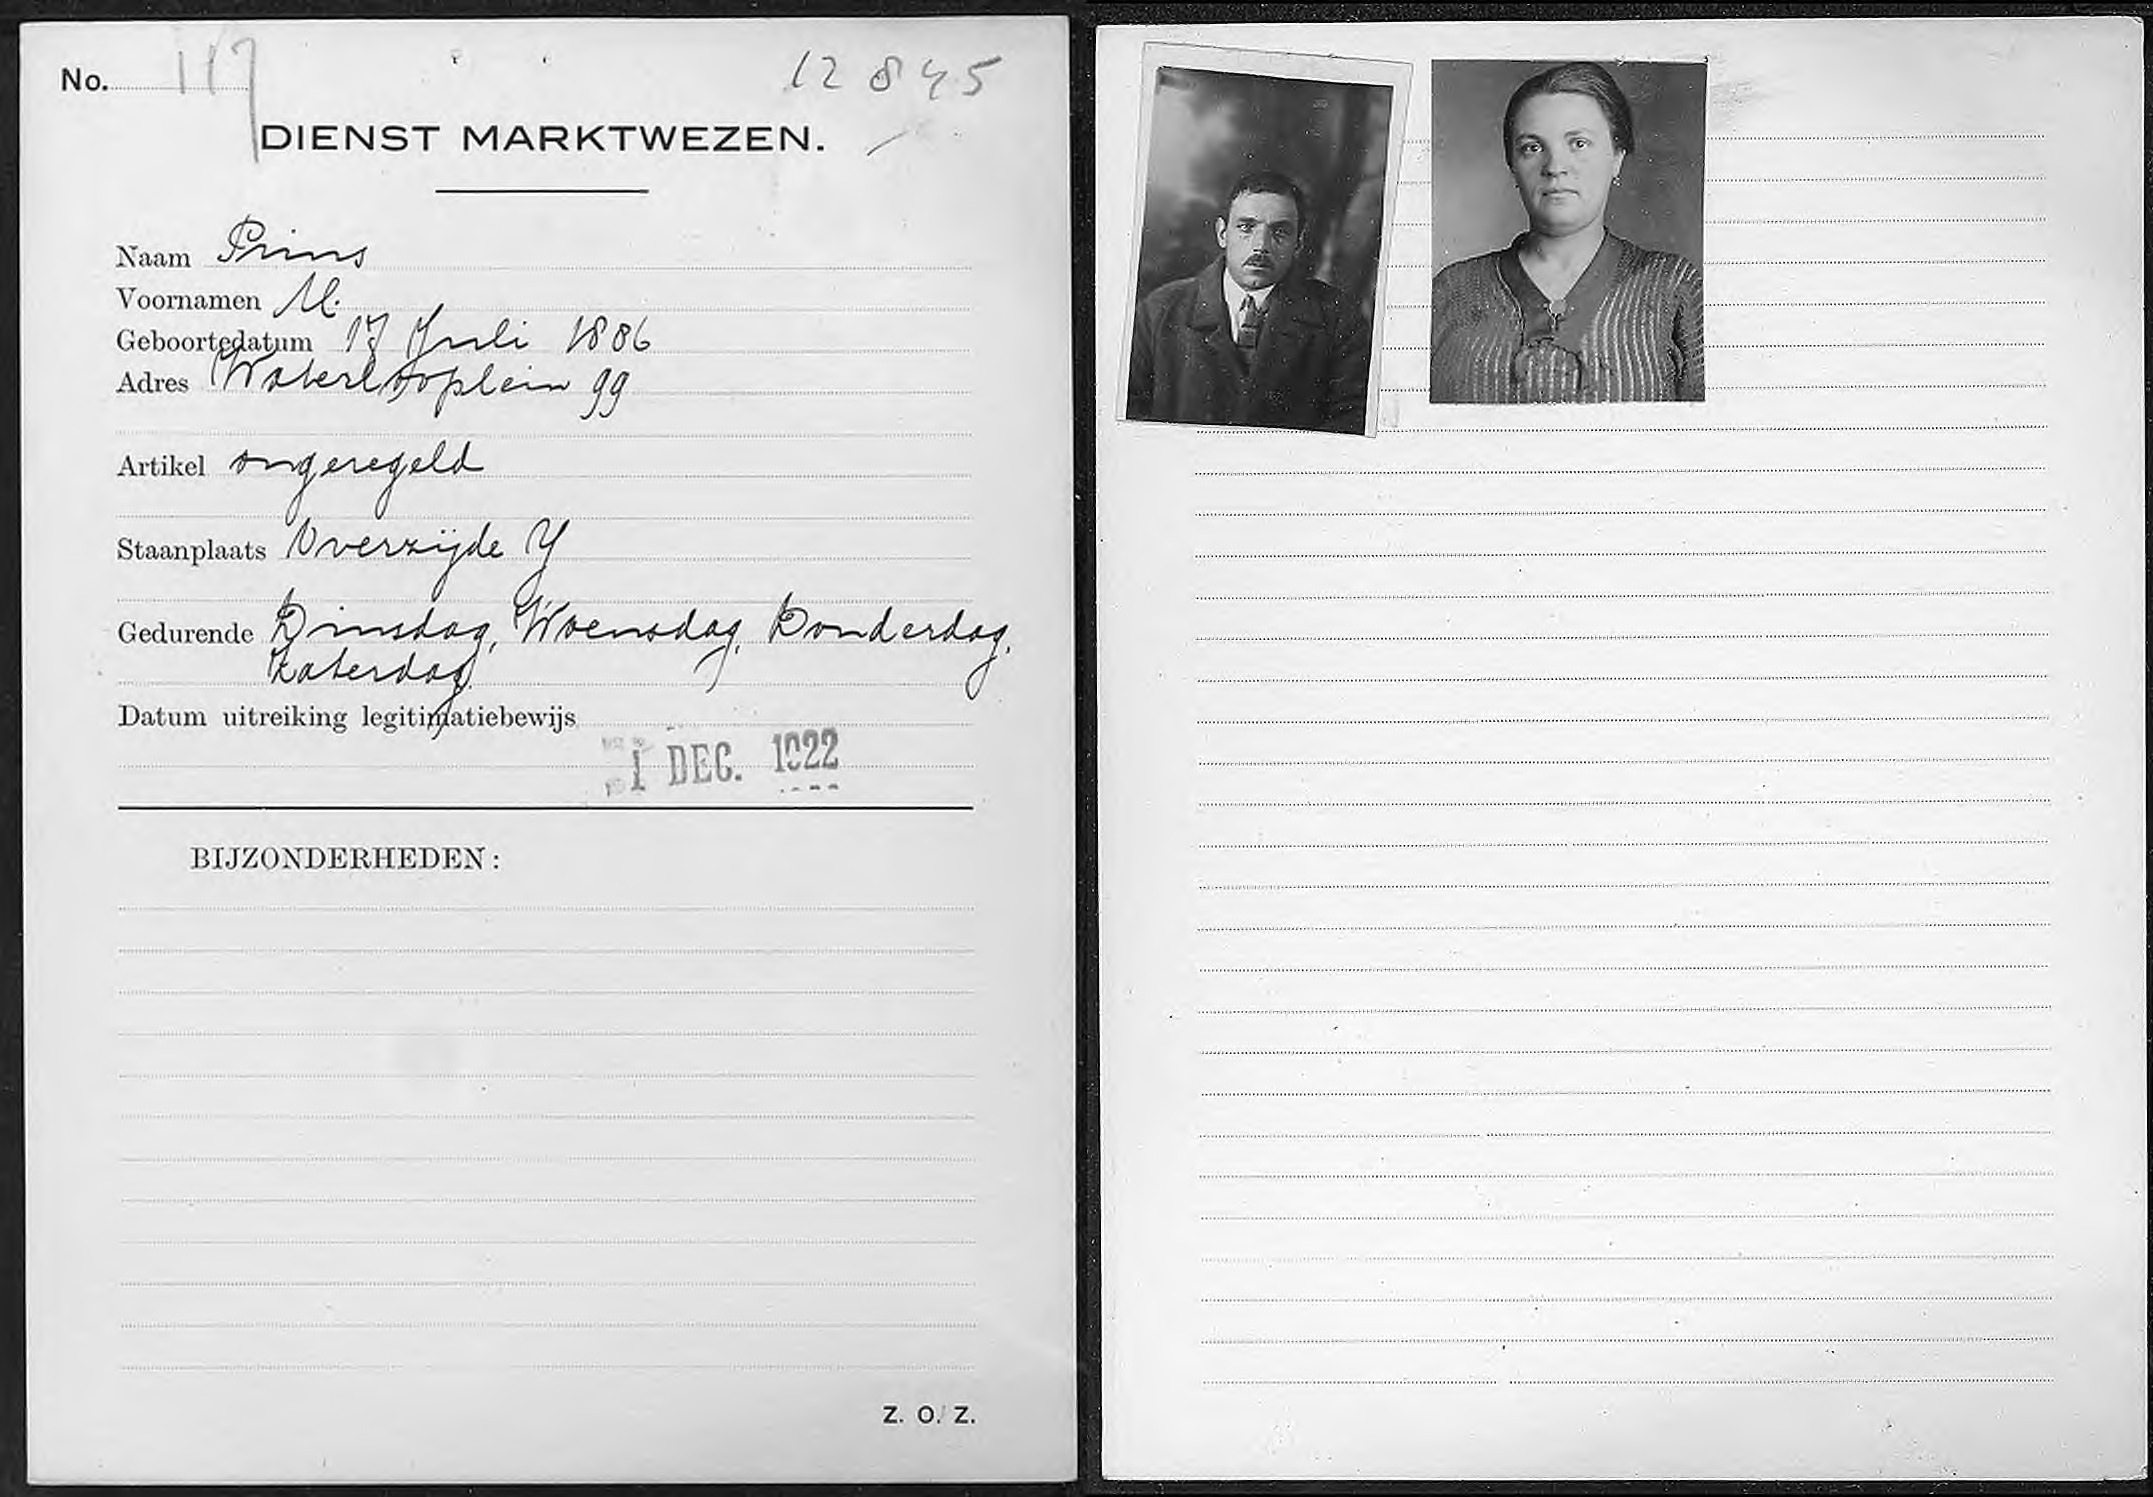 No. 117 12845
DIENST MARKTWEZEN.
Naam Prins
Voornamen M.
Geboortedatum 17 Juli 1886
Adres Waterlooplein 99
Artikel ongeregeld
Staanplaats Overzijde Y
Gedurende Dinsdag, Woensdag, Donderdag,
Zaterdag
Datum uitreiking legitimatiebewijs
1 DEC. 1922
BIJZONDERHEDEN:
Z. O. Z.